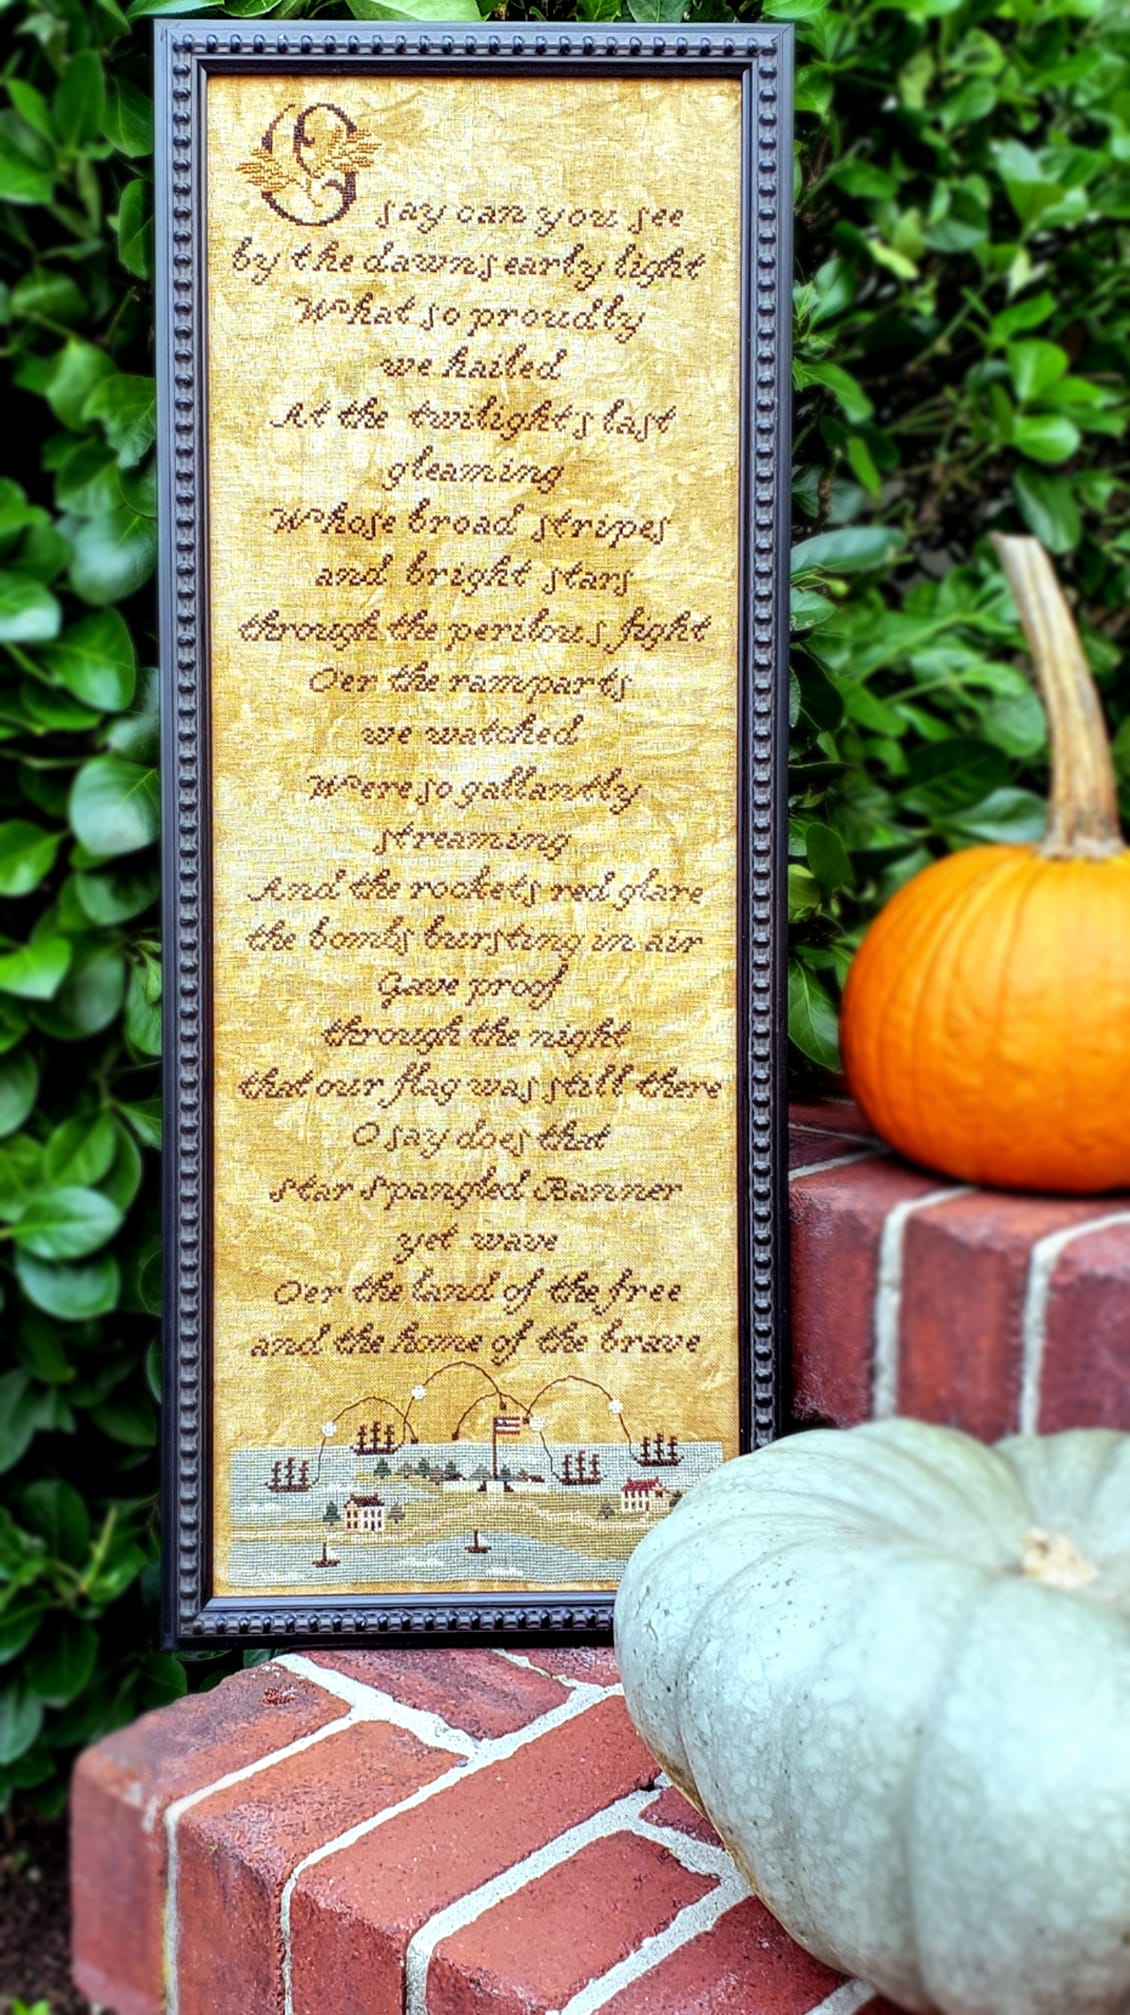 O say can you see
by the dawns early light
What so proudly
we hailed
At the twilights last
gleaming
Whose broad stripes
and bright stars
through the perilous fight
Oer the ramparts
we watched
Were so gallantly
streaming
And the rockets red glare
the bombs bursting in air
Gave proof
through the night
that our flag was still there
O say does that
star Spangled Banner
yet wave
Oer the land of the free
and the home of the brave